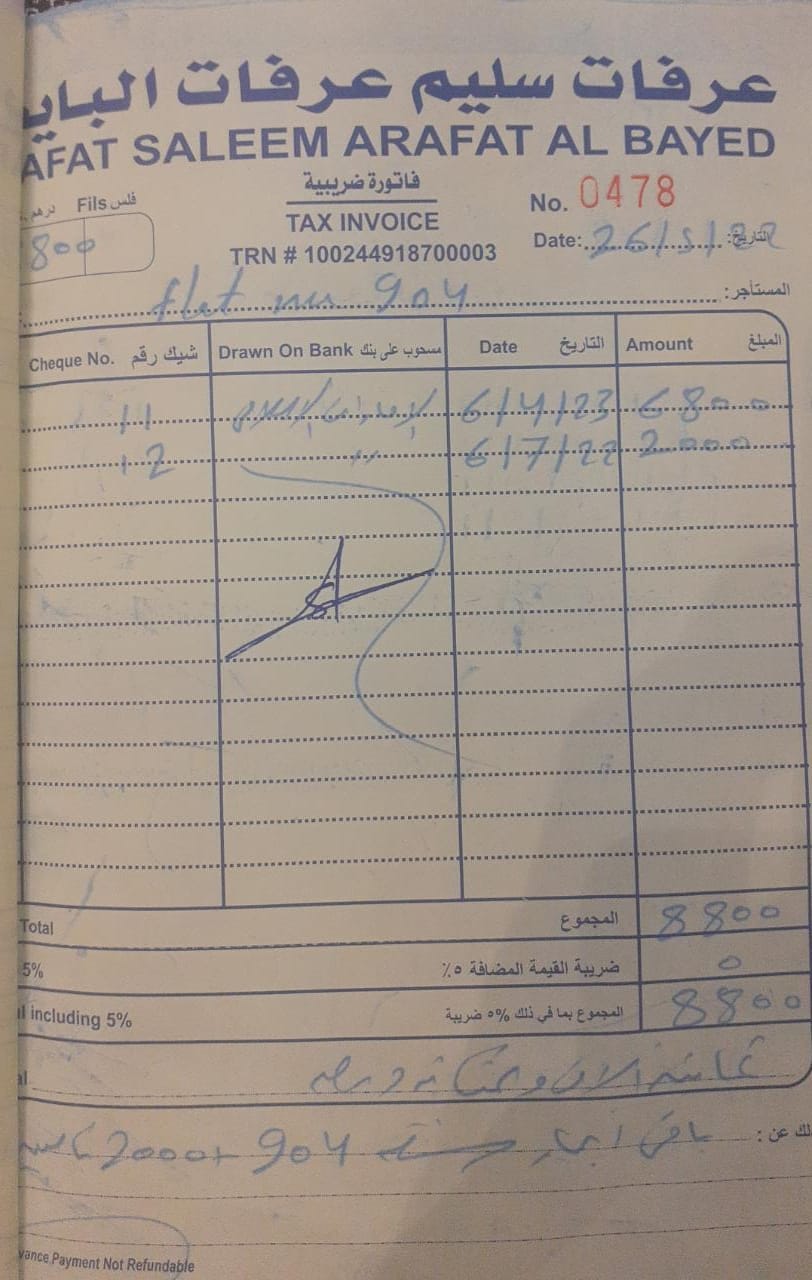 عرفات سليم عرفات الباي
AFAT SALEEM ARAFAT AL BAYED
فاتورة ضريبية
TAX INVOICE
TRN # 100244918700003
درهم Fils فلس
800
No. 0478
Date: 26/5/22 التاريخ:
المستأجر: flat nu 904
Cheque No. شيك رقم Drawn On Bank مسحوب على بنك Date التاريخ Amount المبلغ
11 الإمارات الإسلامي 6/4/23 6800
12 " 6/7/22 2000
Total المجموع 8800
5% ضريبة القيمة المضافة ٥٪ 0
l including 5% المجموع بما في ذلك ٥% ضريبة 8800
al ثمانية آلاف وثمانمائة درهم
لك عن: باقي ايجار شقة 904 + 2000
vance Payment Not Refundable